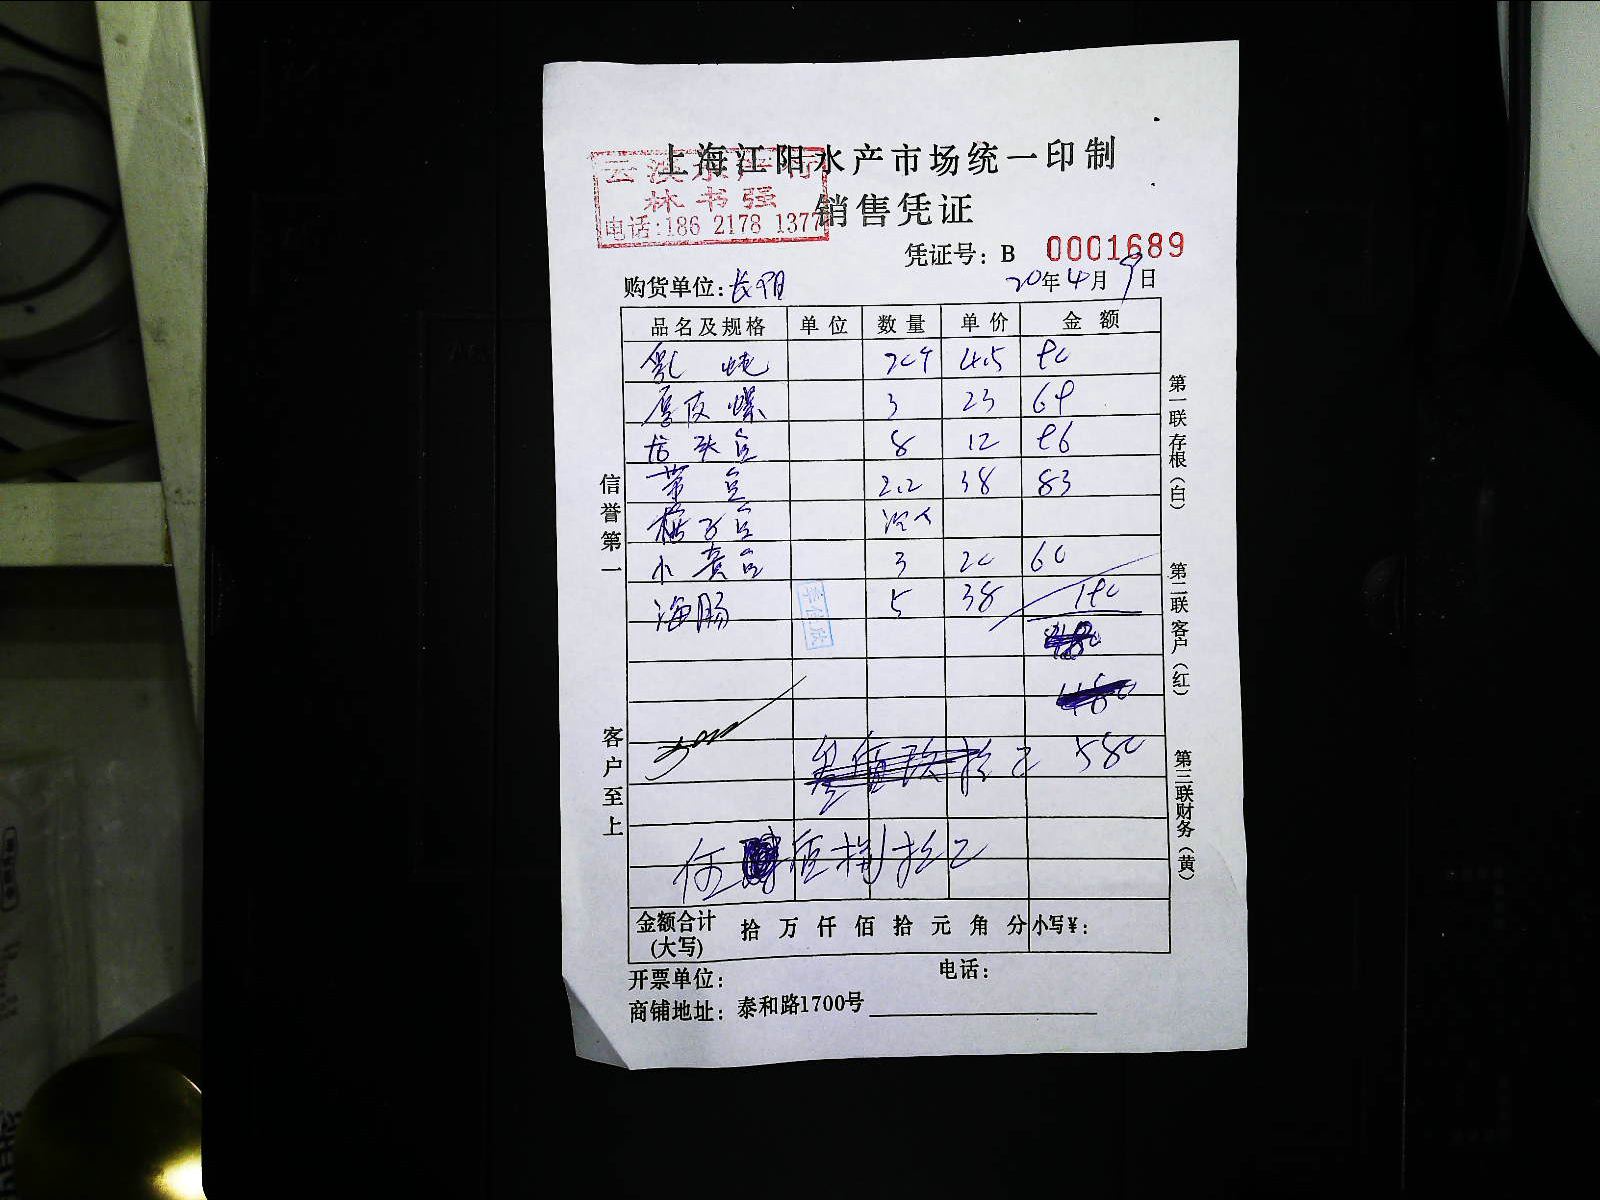 上海江阳水产市场统一印制
云溪水产行
林书强
电话:186 2178 1377
销售凭证
凭证号: B 0001689
购货单位: 长阳
20年4月9日
品名及规格 单位 数量 单价 金额
4.5 90
厚皮螺 3 23 69
8 12 96
2.2 38 83
小黄 3 20 60
海肠 5 38 190
580
佰捌拾元
金额合计(大写) 拾 万 仟 佰 拾 元 角 分 小写¥:
开票单位: 电话:
商铺地址: 泰和路1700号
信誉第一
客户至上
第一联存根(白)
第二联客户(红)
第三联财务(黄)